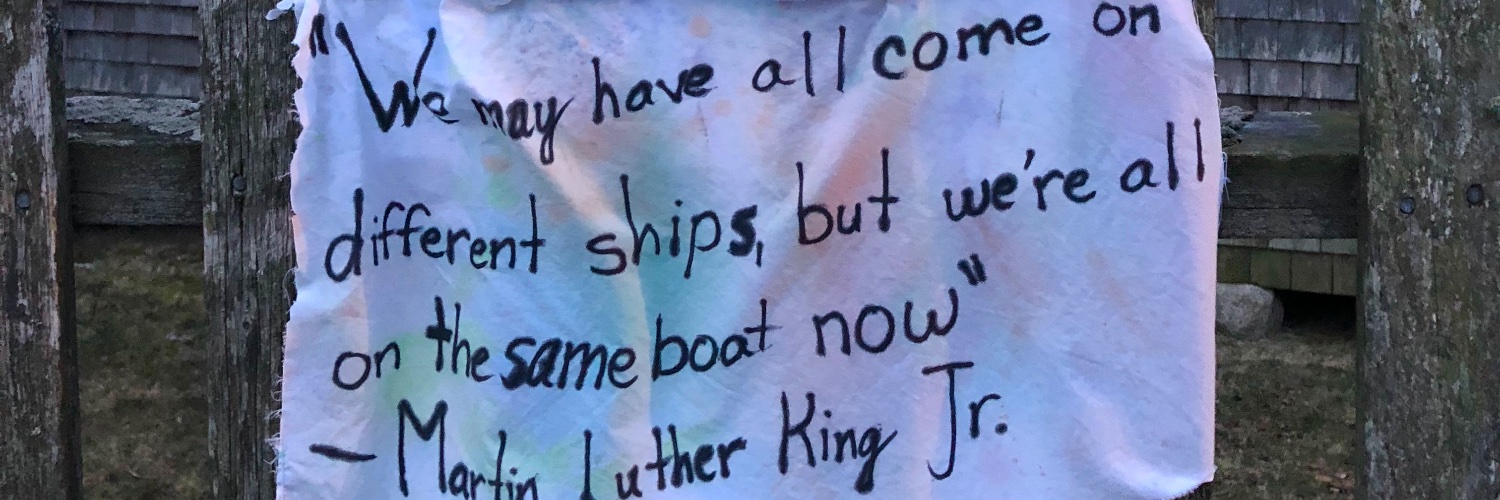 "We may have all come on
different ships, but we're all
on the same boat now"
- Martin Luther King Jr.